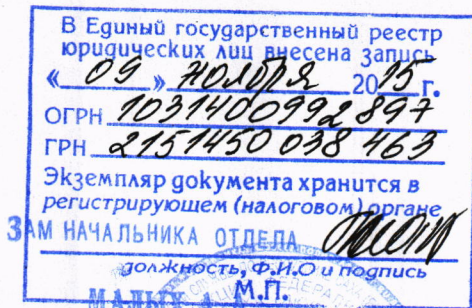 В Единый государственный реестр
юридических лиц внесена запись
« 09 » ноября 2015 г.
ОГРН 1031400992897
ГРН 2151450038463
Экземпляр документа хранится в
регистрирующем (налоговом) органе
ЗАМ НАЧАЛЬНИКА ОТДЕЛА
должность, Ф.И.О и подпись
М.П.
МАЛЫХ